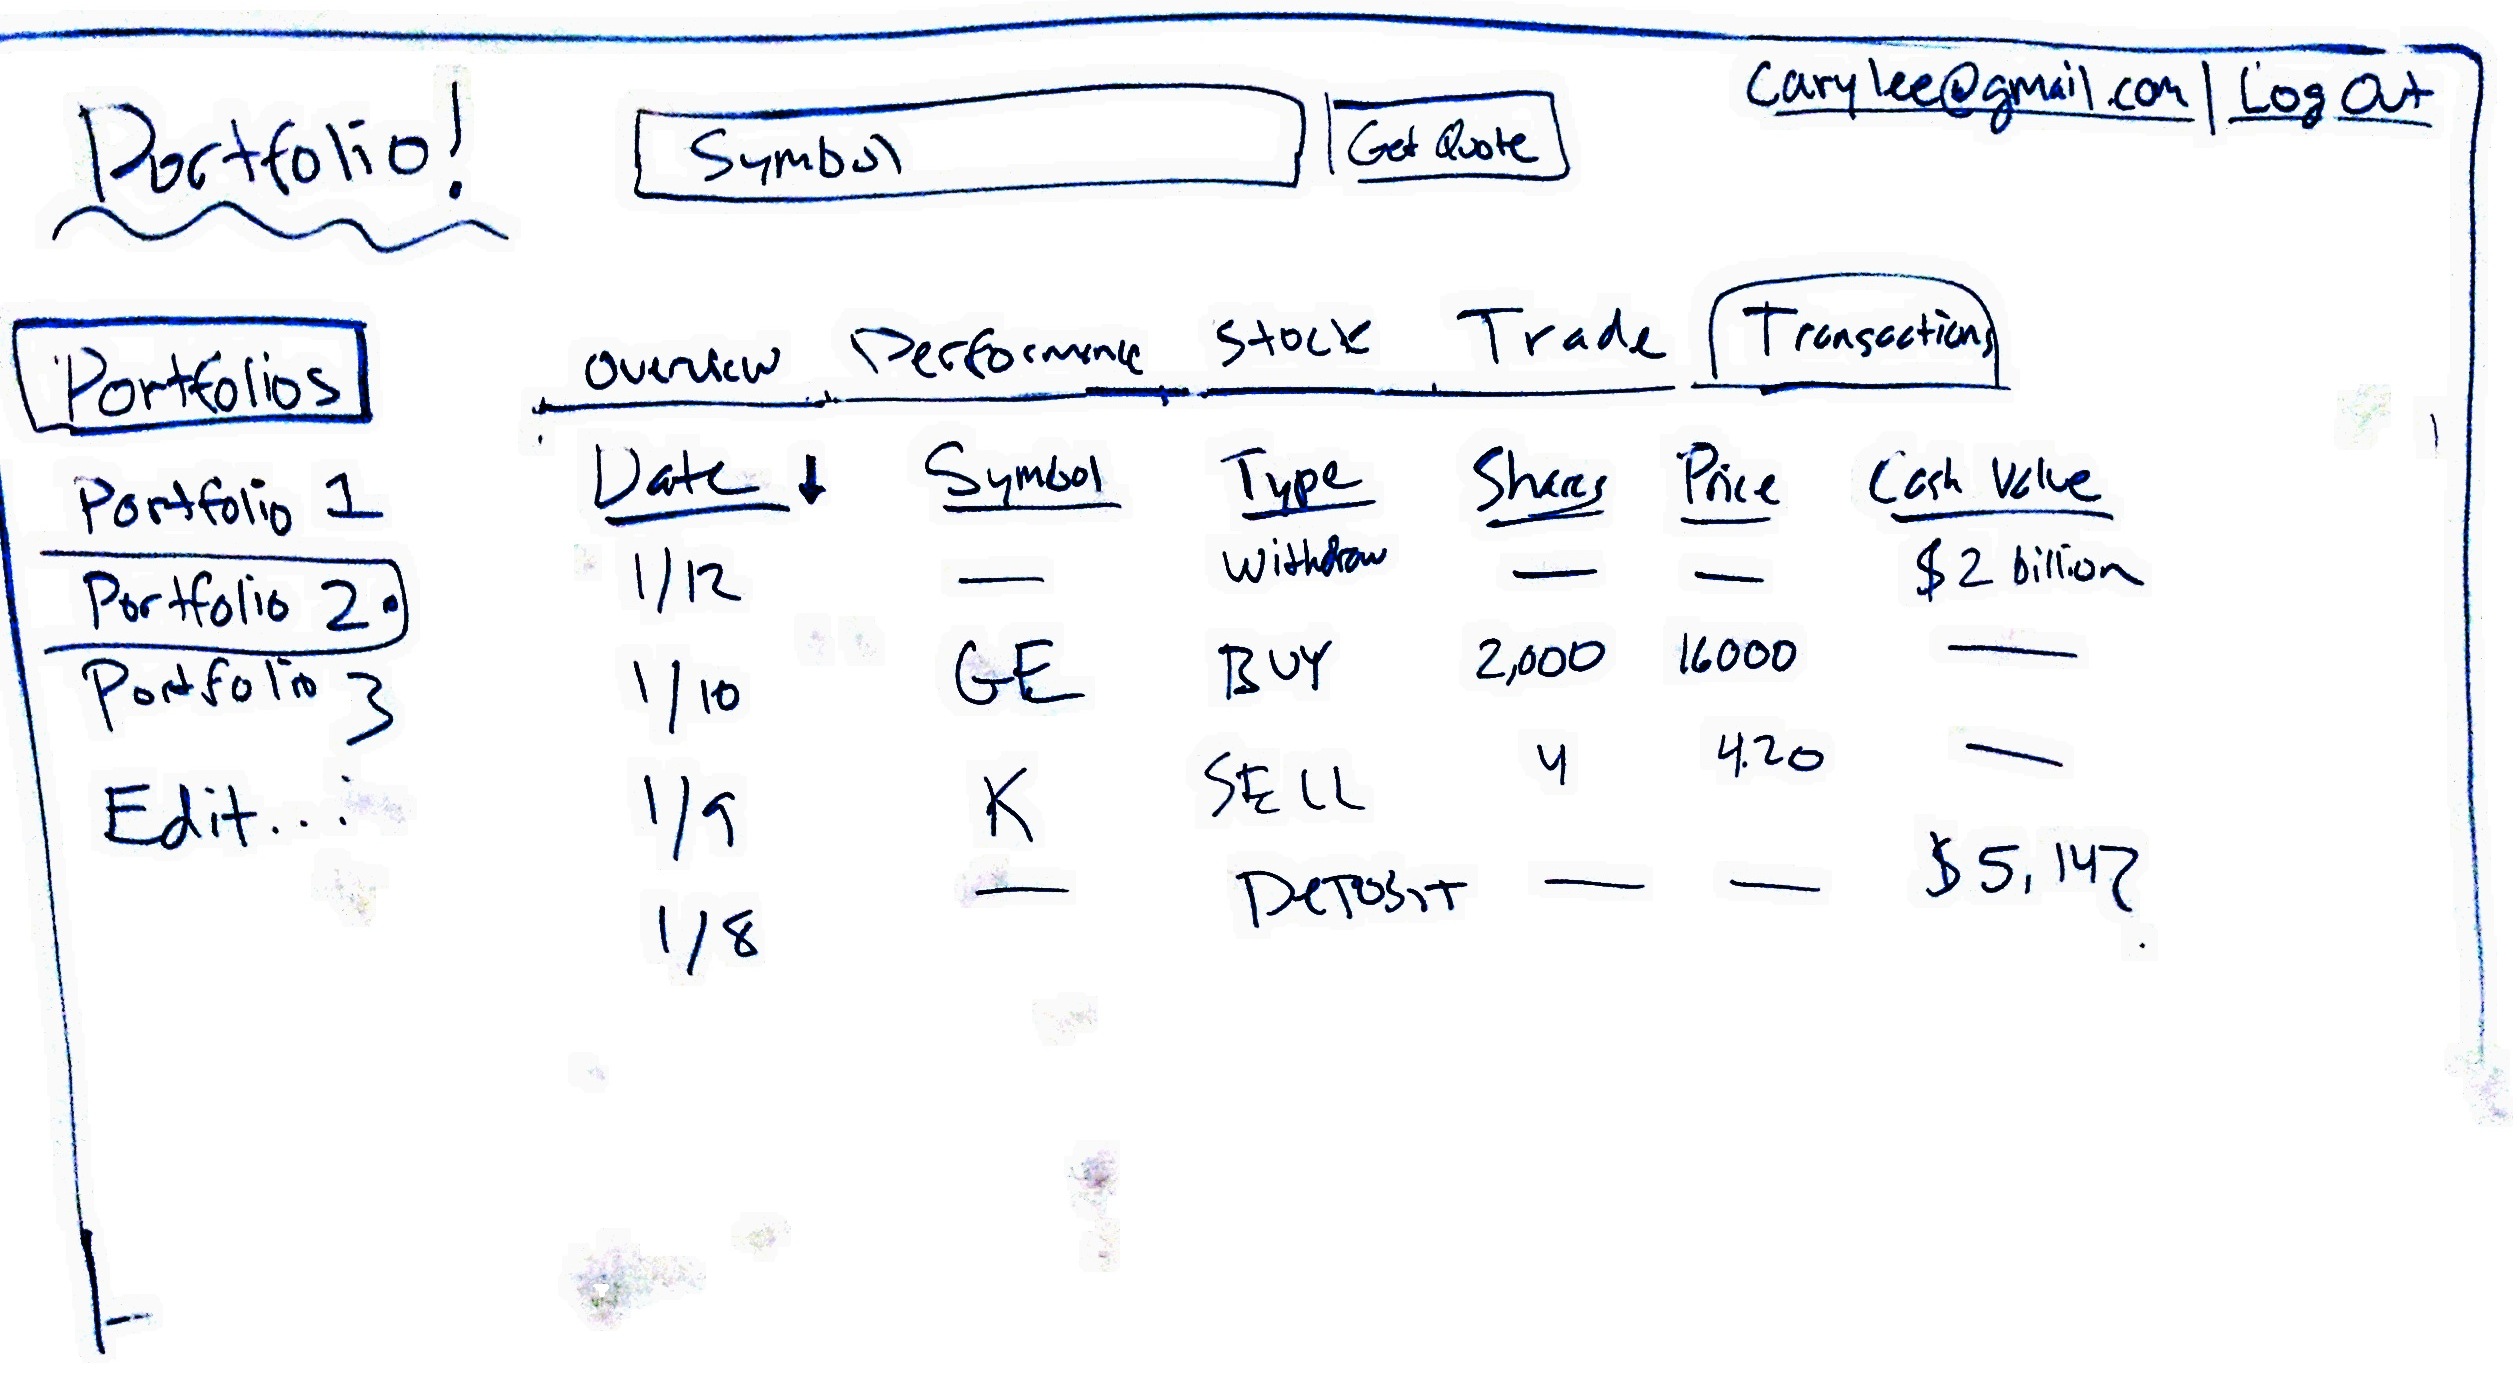 carylee@gmail.com | Log Out
Portfolio!
Symbol
Get Quote
Portfolios
Portfolio 1
Portfolio 2
Portfolio 3
Edit...
Overview Performance Stock Trade Transactions
Date ↓ Symbol Type Shares Price Cash Value
1/12 — Withdraw — — $2 billion
1/10 GE BUY 2,000 16000 —
1/9 K SELL 4 4.20 —
1/8 — Deposit — — $5,142